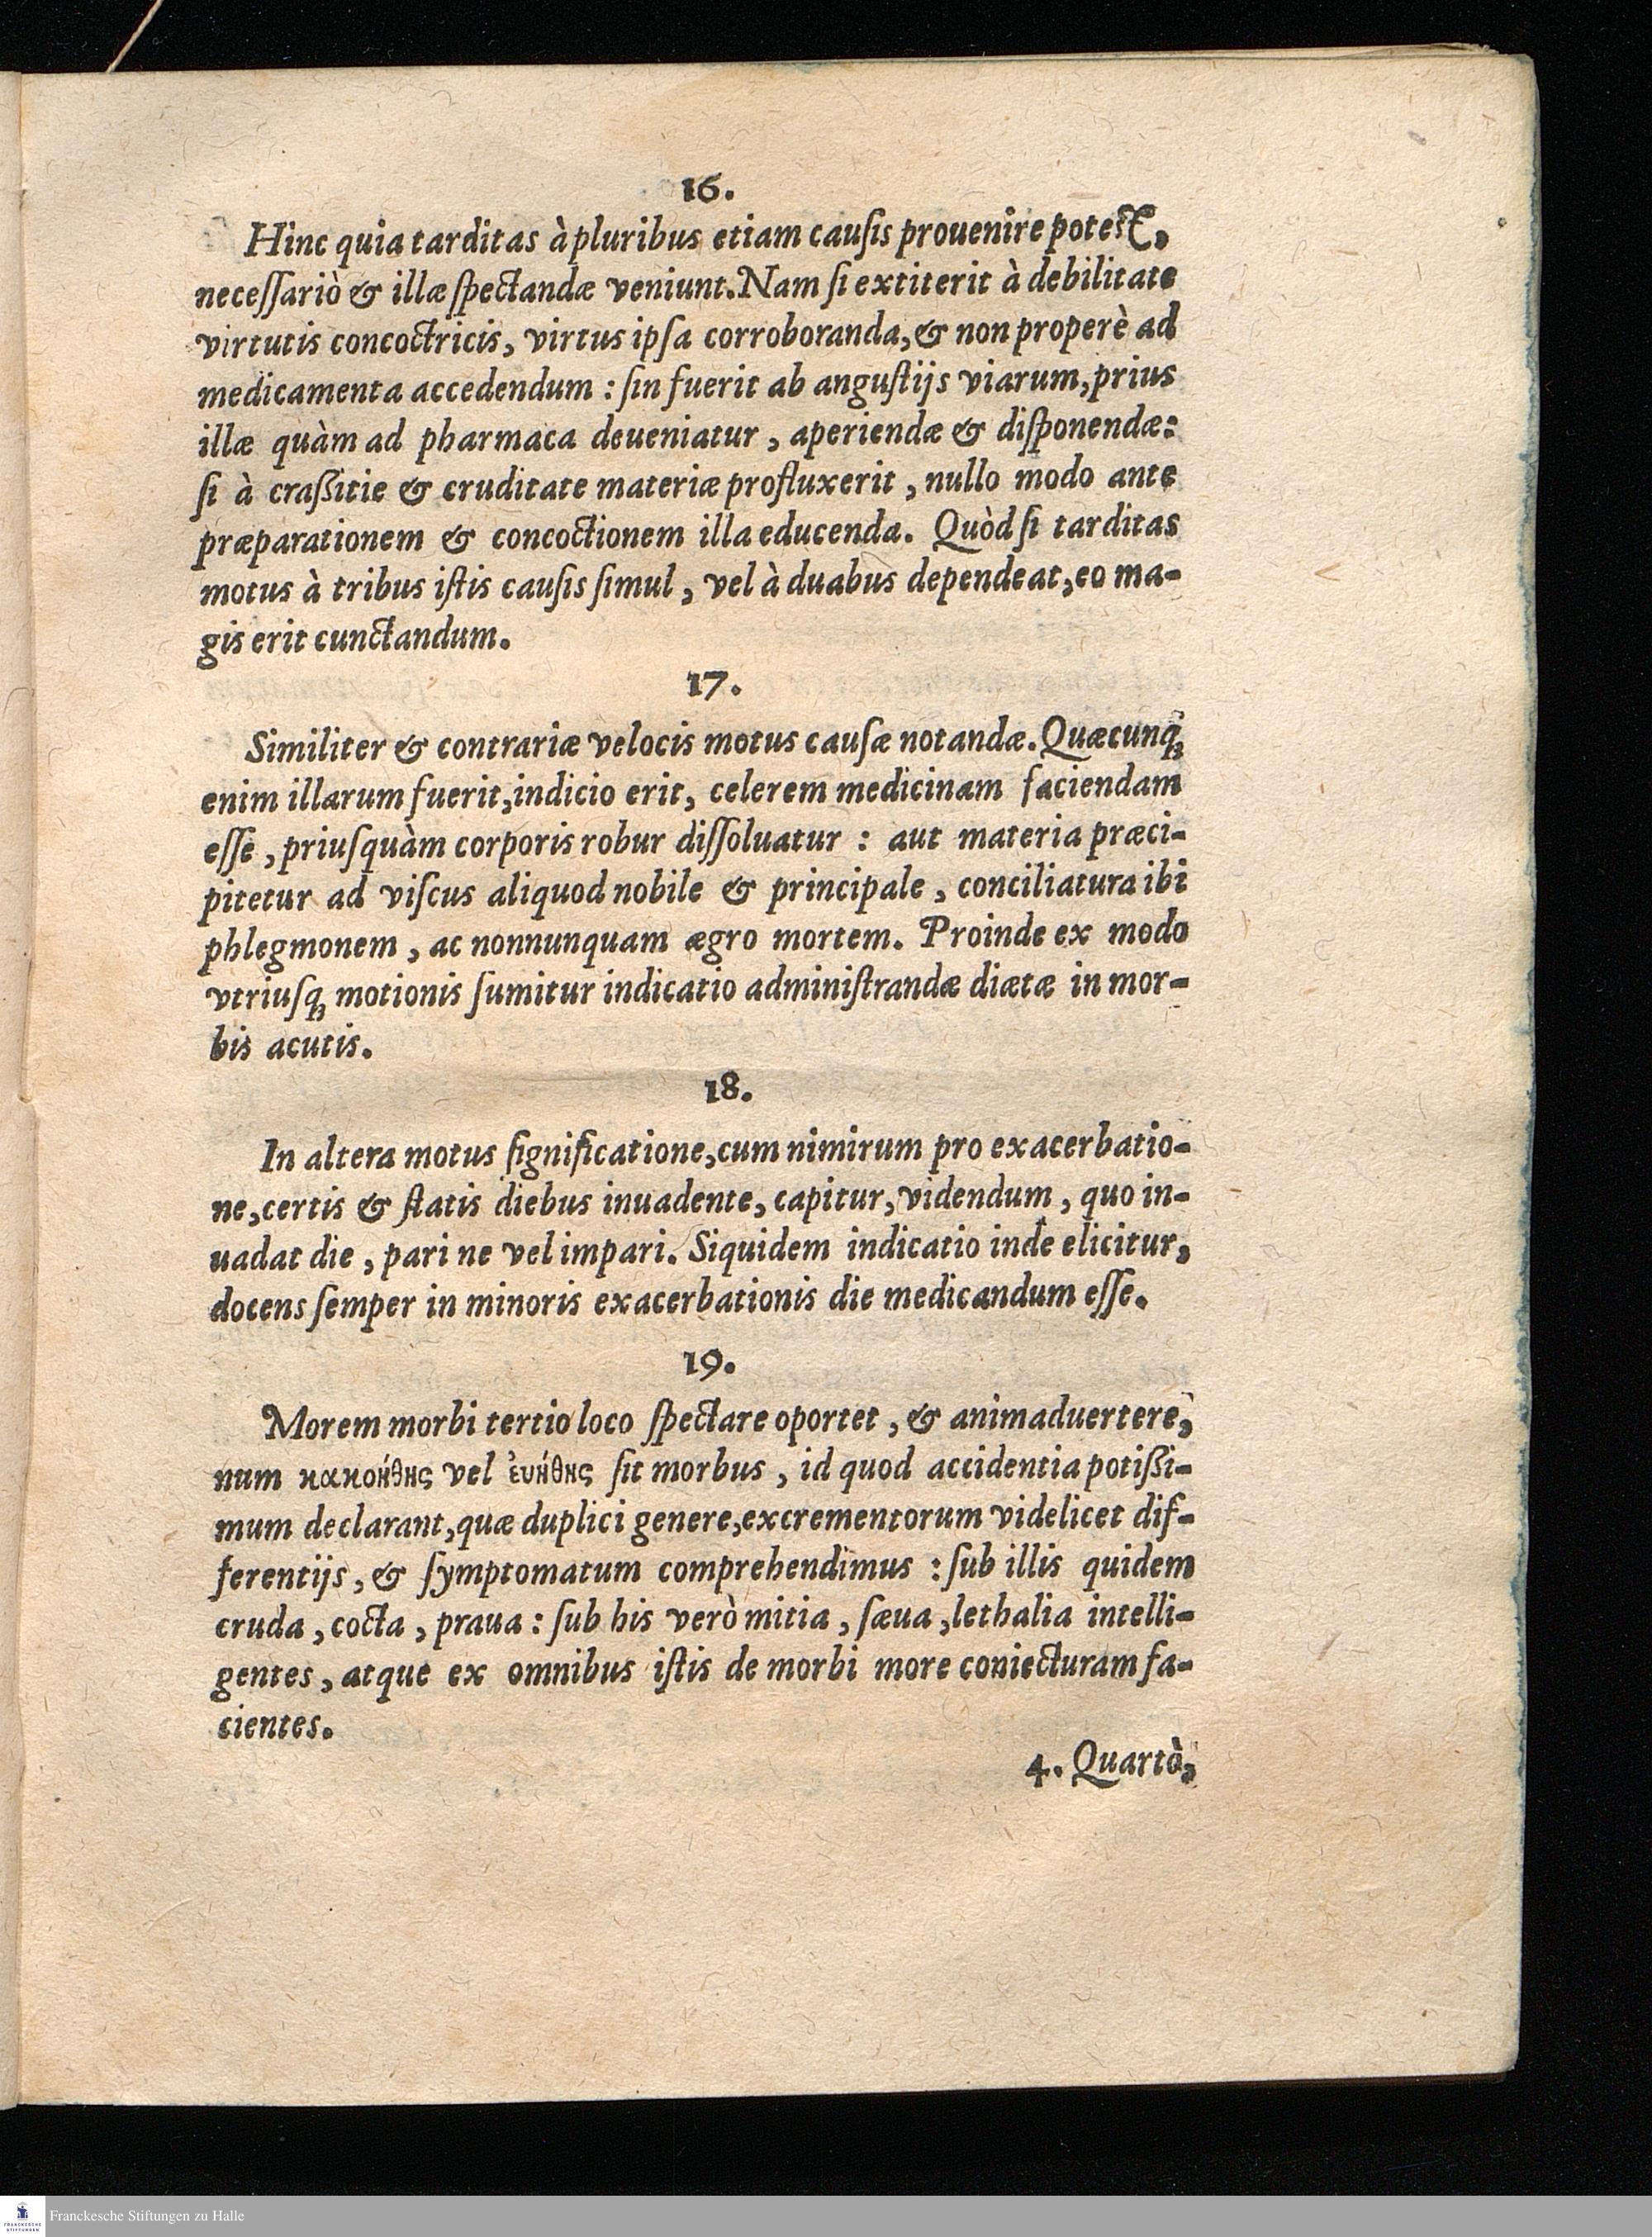 16.
Hinc quia tarditas à pluribus etiam cauſis prouenire poteſt,
neceſſariò & illæ ſpectandæ veniunt. Nam ſi extiterit à debilitate
virtutis concoctricis, virtus ipſa corroboranda, & non properè ad
medicamenta accedendum : ſin fuerit ab anguſtijs viarum, prius
illæ quàm ad pharmaca deueniatur, aperiendæ & diſponendæ:
ſi à craßitie & cruditate materiæ profluxerit, nullo modo ante
præparationem & concoctionem illa educenda. Quòd ſi tarditas
motus à tribus iſtis cauſis ſimul, vel à duabus dependeat, eo ma-
gis erit cunctandum.
17.
Similiter & contrariæ velocis motus cauſæ notandæ. Quæcunq́ꝫ
enim illarum fuerit, indicio erit, celerem medicinam faciendam
eſſe, priuſquàm corporis robur diſſoluatur : aut materia præci-
pitetur ad viſcus aliquod nobile & principale, conciliatura ibi
phlegmonem, ac nonnunquam ægro mortem. Proinde ex modo
vtriuſqꝫ motionis ſumitur indicatio adminiſtrandæ diætæ in mor-
bis acutis.
18.
In altera motus ſignificatione, cum nimirum pro exacerbatio-
ne, certis & ſtatis diebus inuadente, capitur, videndum, quo in-
uadat die, pari ne vel impari. Siquidem indicatio inde elicitur,
docens ſemper in minoris exacerbationis die medicandum eſſe.
19.
Morem morbi tertio loco ſpectare oportet, & animaduertere,
num κακοήθης vel ἐυήθης ſit morbus, id quod accidentia potißi-
mum declarant, quæ duplici genere, excrementorum videlicet dif-
ferentijs, & ſymptomatum comprehendimus : ſub illis quidem
cruda, cocta, praua : ſub his verò mitia, ſæua, lethalia intelli-
gentes, atque ex omnibus iſtis de morbi more coniecturam fa-
cientes.
4. Quartò,
FRANCKESCHE
STIFTUNGEN
Franckesche Stiftungen zu Halle